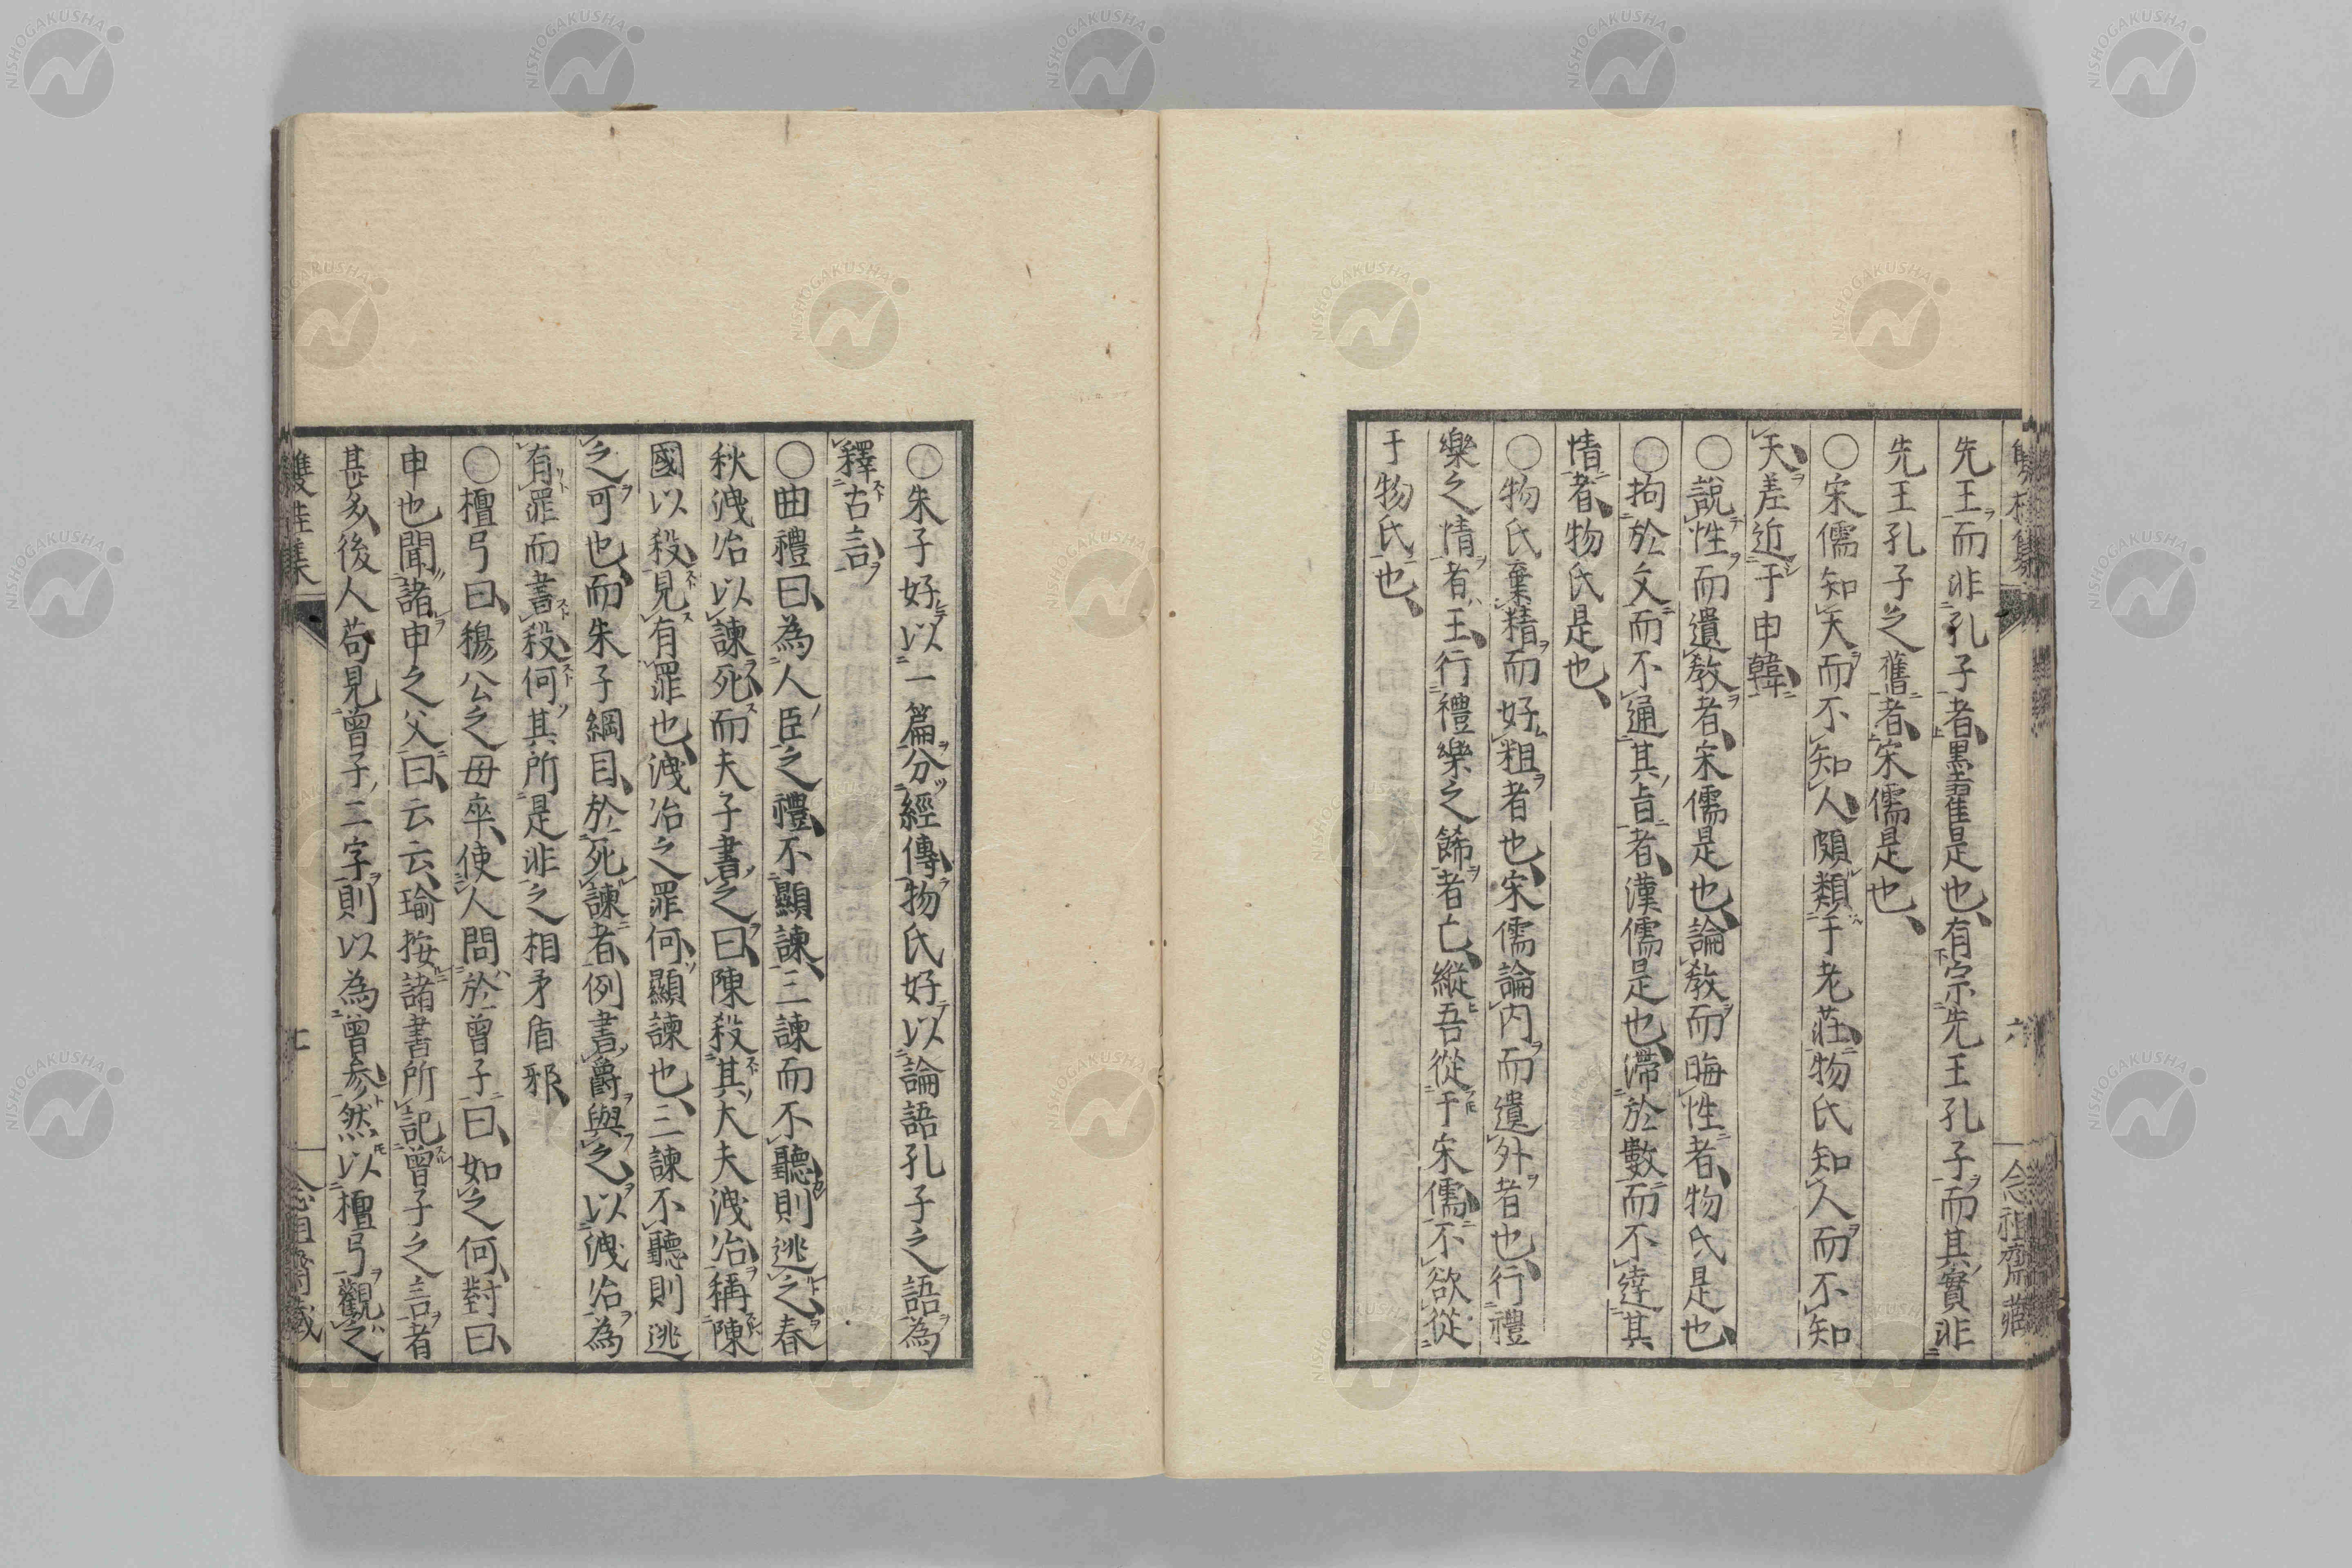 先王而非孔子者墨翟是也有宗先王孔子而其實非
先王孔子之舊者宋儒是也
○宋儒知天而不知人頗類于老莊物氏知人而不知
天差近于申韓
○說性而遺教者宋儒是也論教而晦性者物氏是也
○拘於文而不通其旨者漢儒是也滯於數而不達其
情者物氏是也
○物氏棄精而好粗者也宋儒論内而遺外者也行禮
樂之情者王行禮樂之餙者亡縱吾從于宋儒不欲從
于物氏也
○朱子好以一篇分經傳物氏好以論語孔子之語為
釋古言
○曲禮曰為人臣之禮不顯諫三諫而不聽則逃之春
秋洩冶以諫死而夫子書之曰陳殺其大夫洩冶稱陳
國以殺見有罪也洩冶之罪何顯諫也三諫不聽則逃
之可也而朱子綱目於死諫者例書爵與之以洩冶為
有罪而書殺何其所是非之相矛盾邪
○檀弓曰穆公之母卒使人問於曾子曰如之何對曰
申也聞諸申之父曰云云瑜按諸書所記曾子之言者
甚多後人苟見曾子二字則以為曾参然以檀弓觀之
雙桂集
七
念祖齋藏
NISHOGAKUSHA